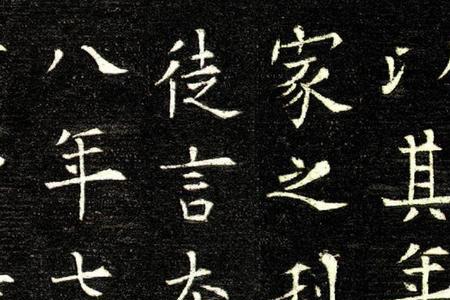 以其年
家之利
徒言
八年七